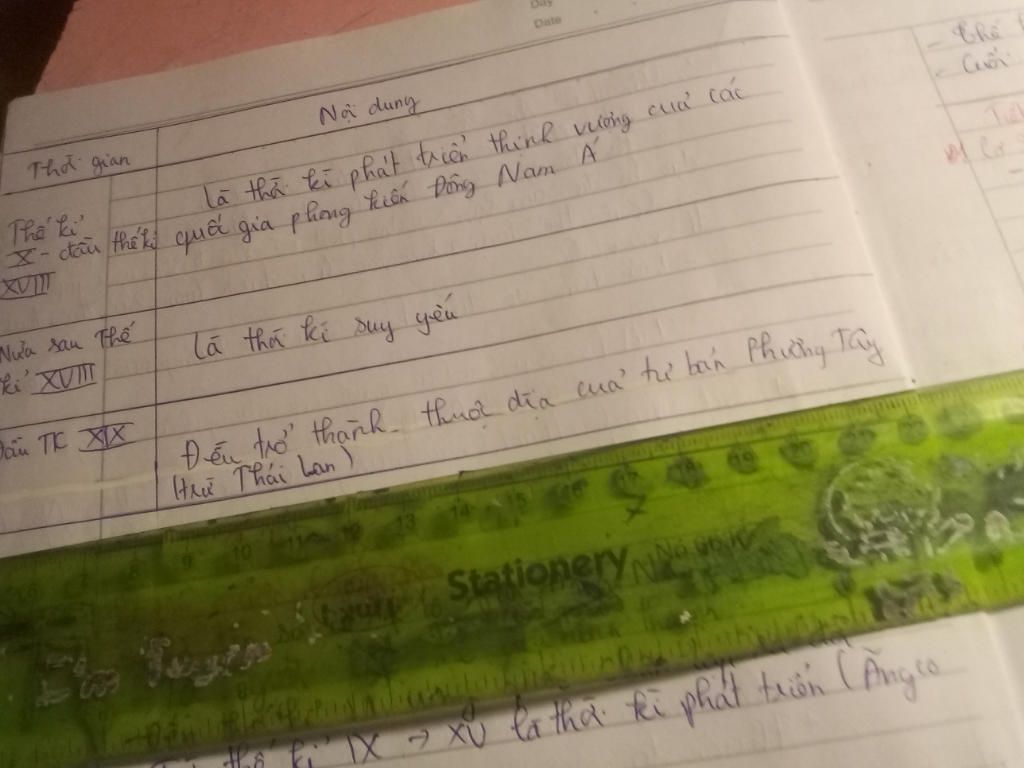 Day
Date
Nội dung
Thời gian
Là thời kì phát triển thịnh vượng của các
quốc gia phong kiến Đông Nam Á
Thế kỉ
X - đầu thế kỉ
XVIII
Nửa sau Thế
kỉ XVIII
Là thời kì suy yếu
Đầu TK XIX
Đều trở thành thuộc địa của tư bản Phương Tây
(trừ Thái Lan)
- Thế
- Cuối
8 9 10 11 12 13 14 15 16 17 18 19 20 21 22
Stationery
thế kỉ IX → XV là thời kì phát triển (Ăngco